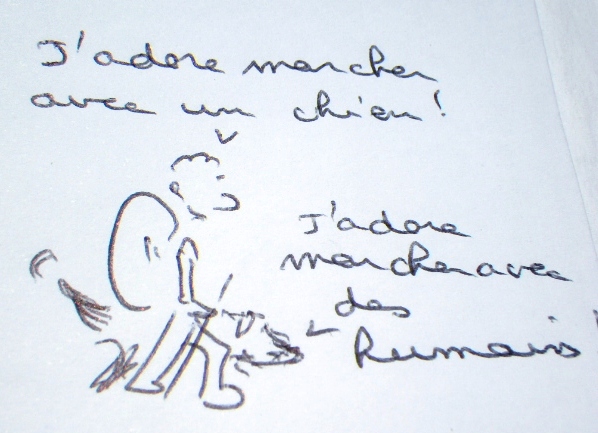 J'adore marcher
avec un chien !
J'adore
marcher avec
des
Humains !